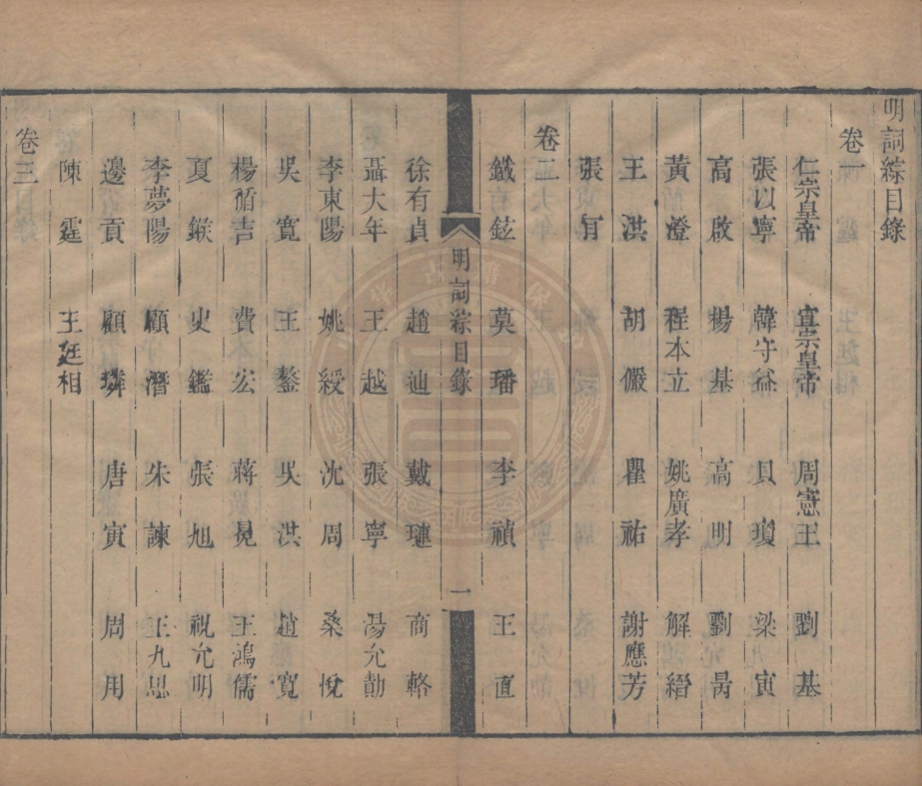 明詞綜目錄
卷一
仁宗皇帝 宣宗皇帝 周憲王 劉基
張以寧 韓守益 貝瓊 梁寅
高啟 楊基 高明 劉昺
黃澄 程本立 姚廣孝 解縉
王洪 胡儼 瞿祐 謝應芳
張肎
卷二
鐵鉉 莫璠 李禎 王直
明詞綜目錄 一
徐有貞 趙迪 戴璉 商輅
聶大年 王越 張寧 湯允勣
李東陽 姚綬 沈周 桑悅
吳寬 王鏊 吳洪 趙寬
楊循吉 費宏 蔣冕 王鴻儒
夏鍭 史鑑 張旭 祝允明
李夢陽 顧潛 朱諫 王九思
邊貢 顧璘 唐寅 周用
陳霆 王廷相
卷三